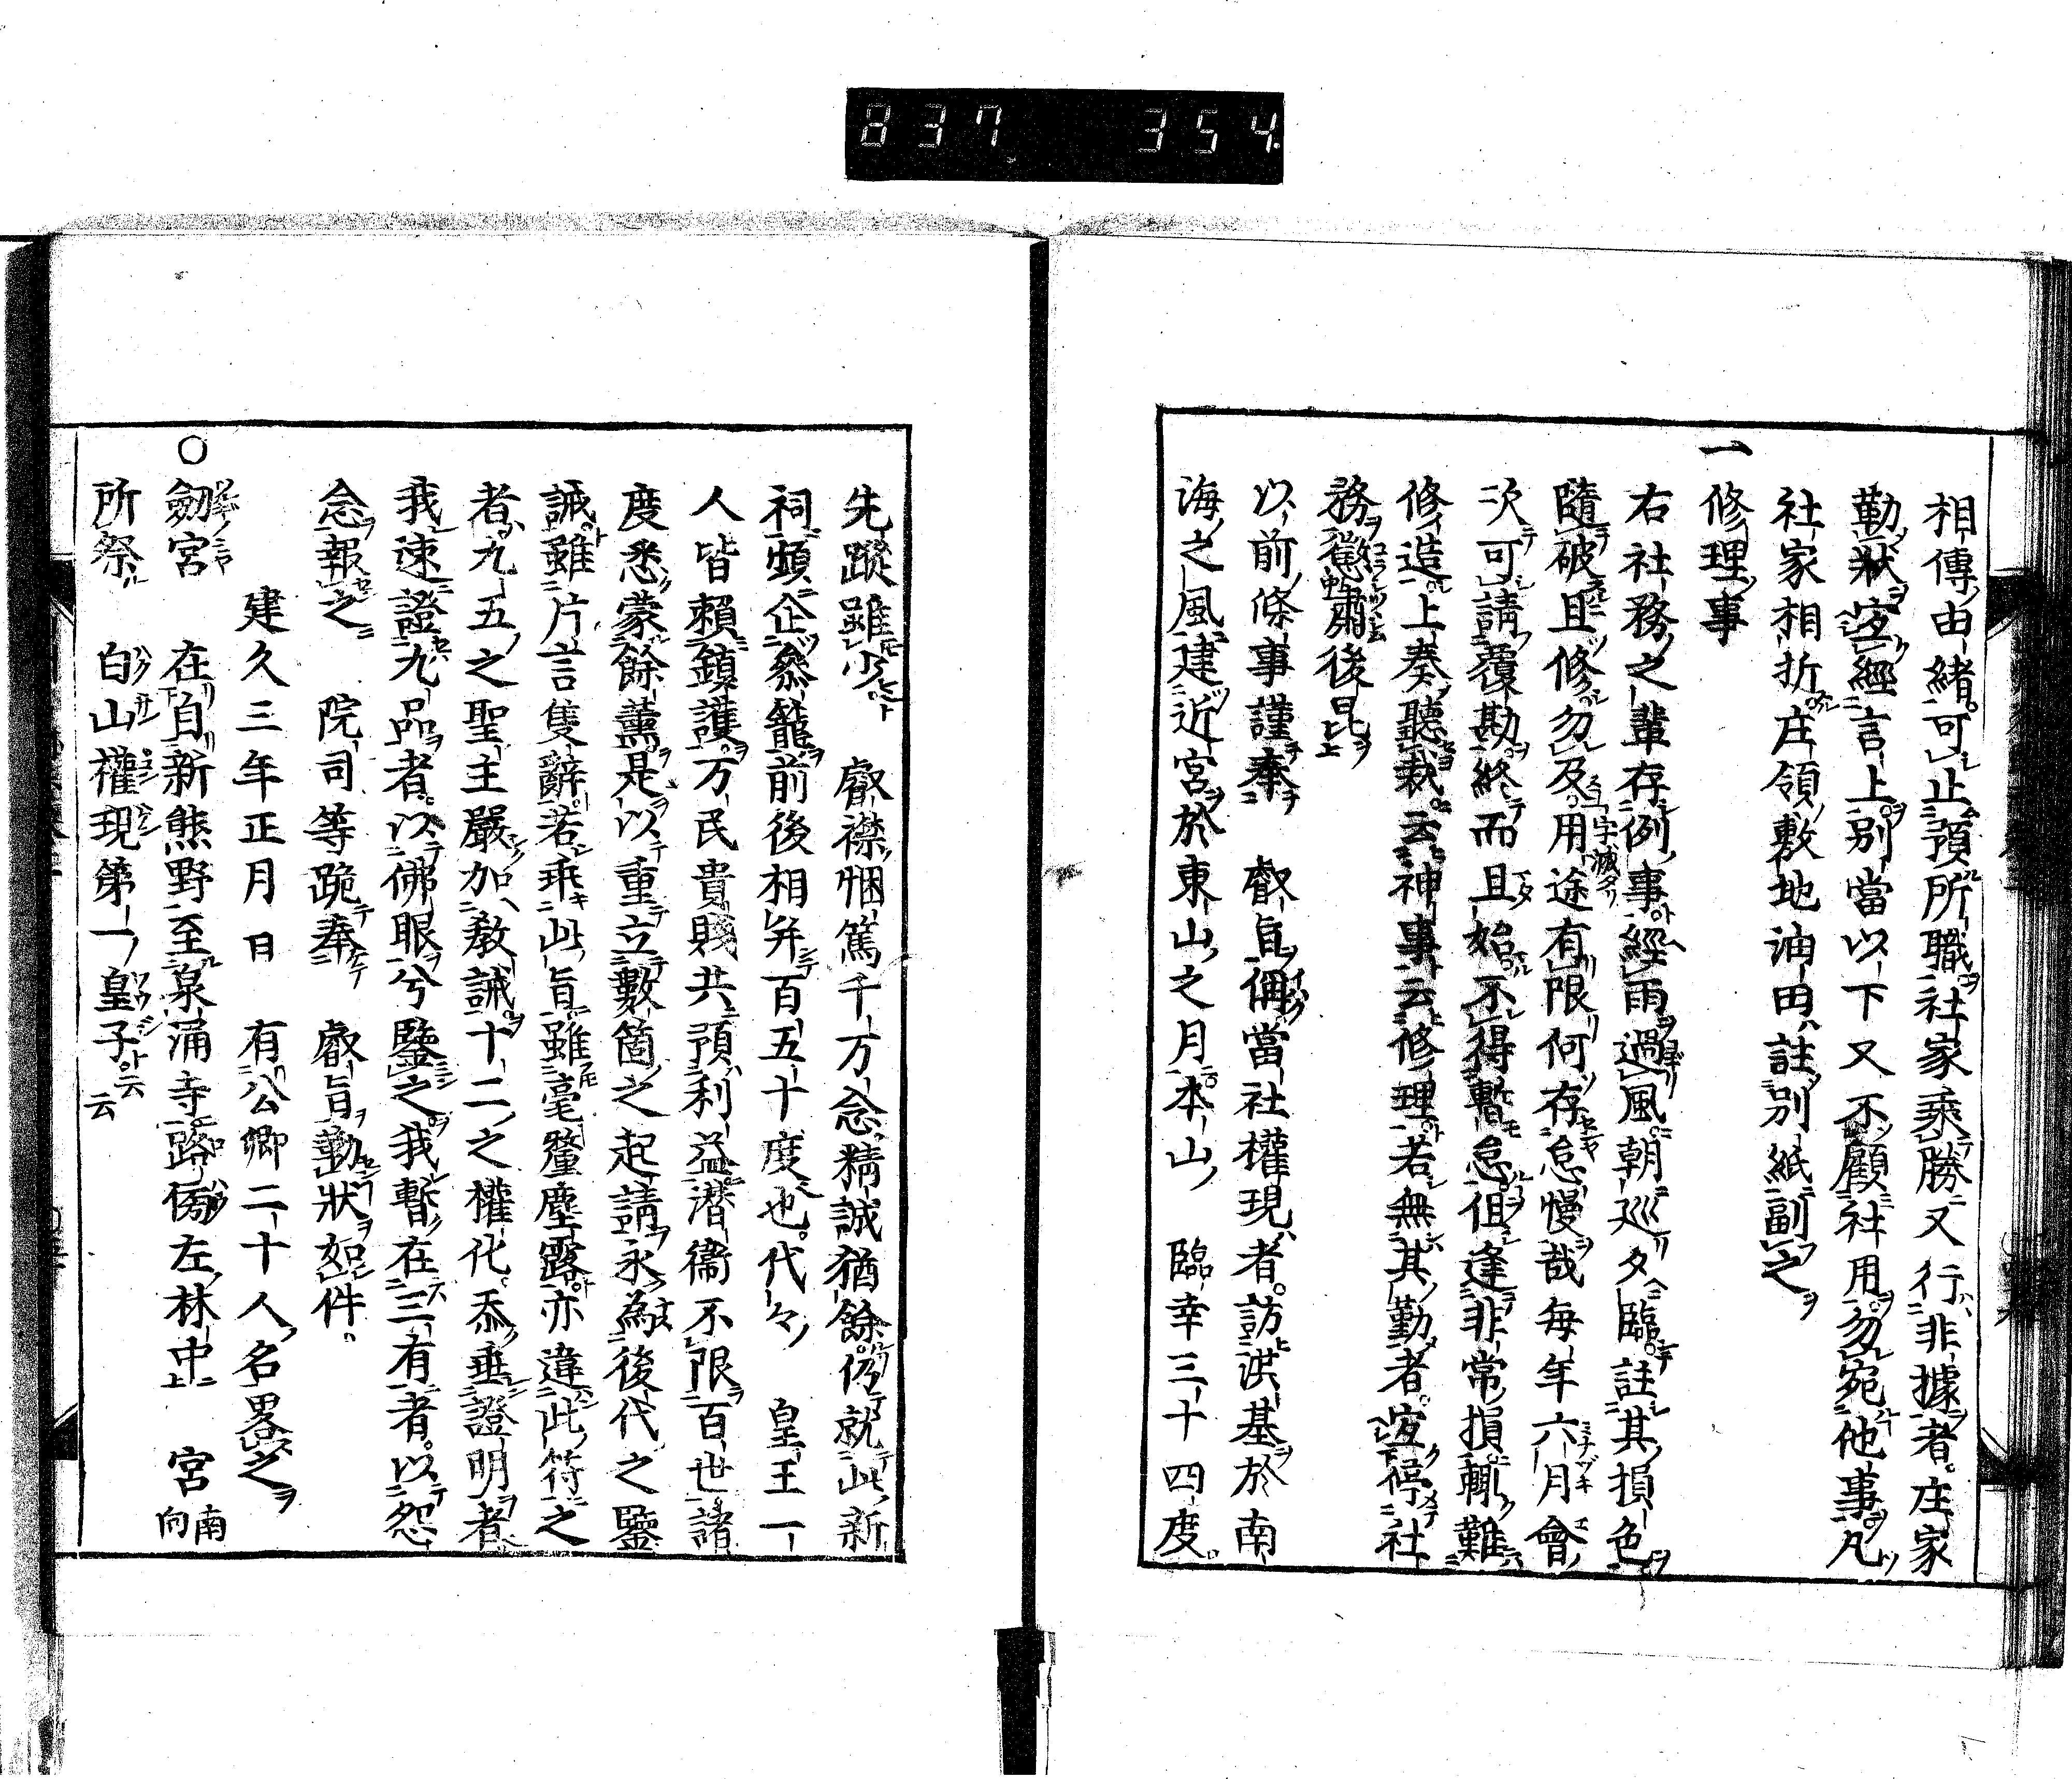 837 354
相傳由緒可止預所職社家乘勝又行非據者庄家
勤狀宜經言上別當以下又不顧社用勿宛他事凡
社家相折庄領敷地油田註別紙副之
一修理事
右社務之輩存例事經雨過風朝巡夕臨註其損色
隨破且修勿及用途有限何存怠慢哉每年六月會
次可請覆勘終而且始不得暫怠但逢非常損輙難
修造上奏聽裁云神事云修理若無其勤者宜停社
務懲肅後昆
以前條事謹奉 叡旨偁當社權現者訪洪基於南
海之風建近宮於東山之月本山 臨幸三十四度
先蹤雖少 叡襟悃篤千万念精誠猶餘仍就此新
祠頻企參籠前後相并百五十度也代々 皇王一
人皆賴鎮護万民貴賤共預利益潜衞不限百世諸
度悉蒙餘薰是以重立數箇之起請永為後代之鑒
誡雖片言隻辭若乖此旨雖毫釐塵露亦違此符之
者九五之聖主嚴加教誡十二之權化忝垂證明者
我速證九品者以佛眼兮鑒之我暫在三有者以怨
念報之 院司等跪奉 叡旨勤狀如件
建久三年正月日 有公卿二十人名畧之
○劔宮 在自新熊野至泉涌寺路傍左林中 宮南向
所祭 白山權現第一皇子云云